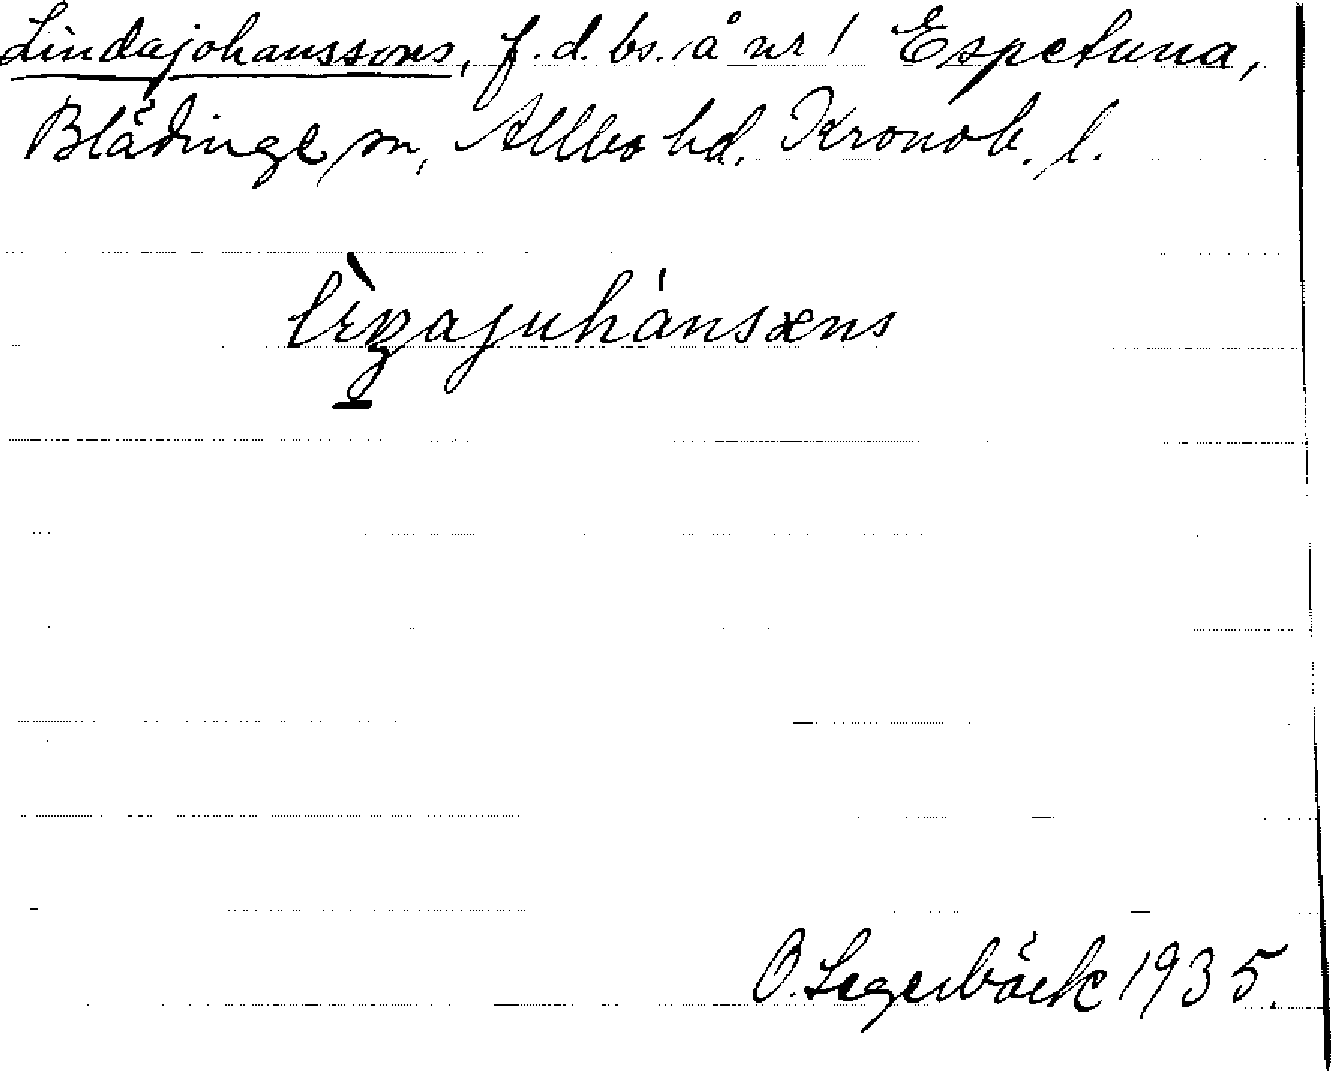 Lindajohanssons, f. d. bs. å nr 1 Espetuna,
Blädinge sn, Allbo hd. Kronob. l.
O. Segerbäck 1935.